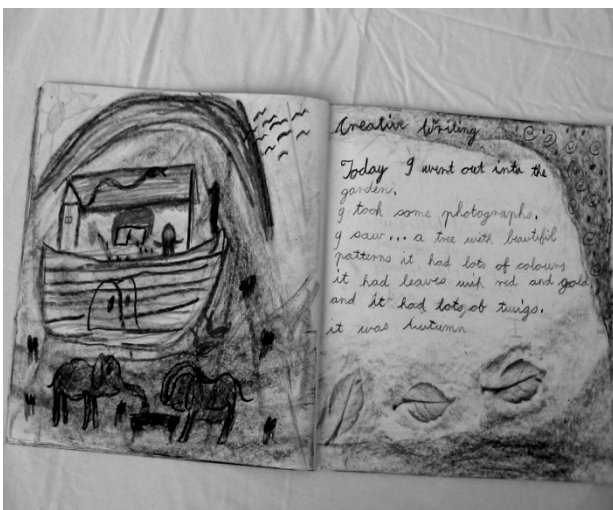 Creative Writing
Today I went out into the
garden.
I took some photographs.
I saw... a tree with beautifil
patterns it had lots of colours
it had leaves with red and gold
and it had lots of twigs.
it was Autumn